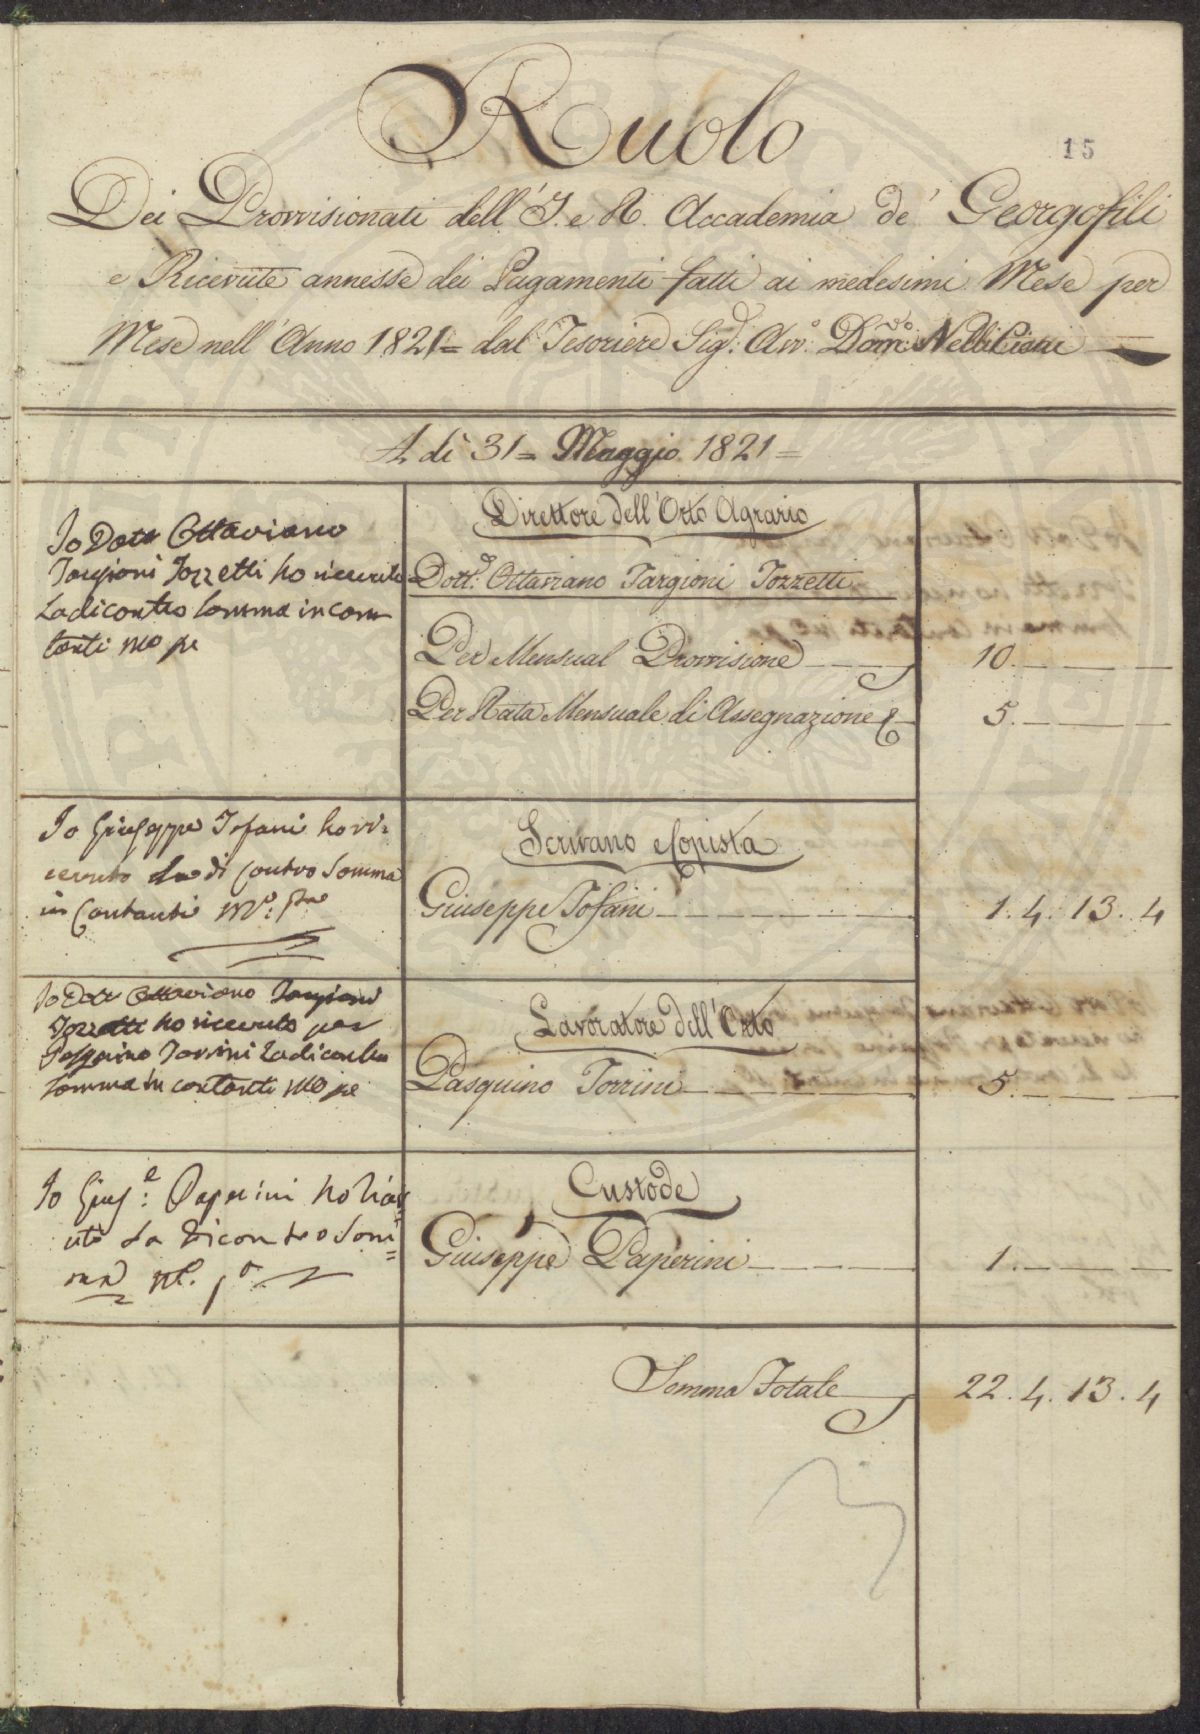 Ruolo
15
Dei Provvisionati dell' I. e R. Accademia de' Georgofili
e Ricevute annesse dei Pagamenti fatti ai medesimi Mese per
Mese nell' Anno 1821= dal Tesoriere Sig.r Avv.o Dom.co Nelli
A dì 31= Maggio 1821=
Io Dott Ottaviano
Targioni Tozzetti ho ricevuto
La di contro Somma in con
tanti mo pa
Direttore dell' Orto Agrario
Dott.e Ottaviano Targioni Tozzetti
Per Mensual Provvisione 10.
Per Rata Mensuale di Assegnazione 5.
Io Giuseppe Tofani ho ri=
cevuto la di Contro Somma
in Contanti M.o p.a
Scrivano e Copista
Giuseppe Tofani 1. 4. 13. 4
Io Dott Ottaviano Targioni
Tozzetti ho ricevuto per
Pasquino Torrini La di contro
Somma in contanti mo pa
Lavoratore dell' Orto
Pasquino Torrini 5.
Io Gius.e Paperini ho rice
uto La Dicontro Som=
ma M. p.a
Custode
Giuseppe Paperini 1.
Somma Totale 22. 4. 13. 4